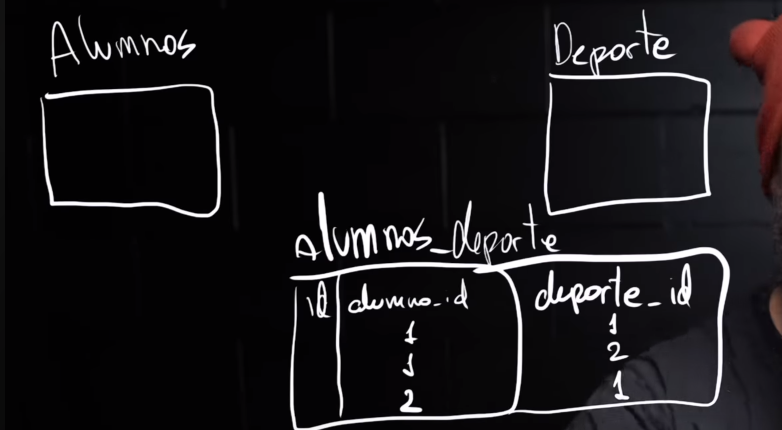 Alumnos
Deporte
Alumnos_deporte
id alumno_id deporte_id
1 1
1 2
2 1